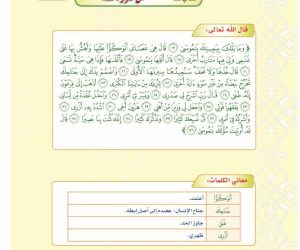 قال الله تعالى:
﴿ وَمَا تِلْكَ بِيَمِينِكَ يَٰمُوسَىٰ ١٧ قَالَ هِيَ عَصَايَ أَتَوَكَّؤُا عَلَيْهَا وَأَهُشُّ بِهَا عَلَىٰ
غَنَمِي وَلِيَ فِيهَا مَـَٔارِبُ أُخْرَىٰ ١٨ قَالَ أَلْقِهَا يَٰمُوسَىٰ ١٩ فَأَلْقَىٰهَا فَإِذَا هِيَ حَيَّةٌ تَسْعَىٰ
٢٠ قَالَ خُذْهَا وَلَا تَخَفْ سَنُعِيدُهَا سِيرَتَهَا ٱلْأُولَىٰ ٢١ وَٱضْمُمْ يَدَكَ إِلَىٰ جَنَاحِكَ
تَخْرُجْ بَيْضَآءَ مِنْ غَيْرِ سُوٓءٍ ءَايَةً أُخْرَىٰ ٢٢ لِنُرِيَكَ مِنْ ءَايَٰتِنَا ٱلْكُبْرَى ٢٣ ٱذْهَبْ إِلَىٰ فِرْعَوْنَ
إِنَّهُۥ طَغَىٰ ٢٤ قَالَ رَبِّ ٱشْرَحْ لِي صَدْرِي ٢٥ وَيَسِّرْ لِيٓ أَمْرِي ٢٦ وَٱحْلُلْ عُقْدَةً مِّن لِّسَانِي ٢٧
يَفْقَهُوا قَوْلِي ٢٨ وَٱجْعَل لِّي وَزِيرًا مِّنْ أَهْلِي ٢٩ هَٰرُونَ أَخِي ٣٠ ٱشْدُدْ بِهِۦٓ أَزْرِي ٣١
وَأَشْرِكْهُ فِيٓ أَمْرِي ٣٢ كَيْ نُسَبِّحَكَ كَثِيرًا ٣٣ وَنَذْكُرَكَ كَثِيرًا ٣٤ إِنَّكَ كُنتَ بِنَا بَصِيرًا ٣٥ قَالَ
قَدْ أُوتِيتَ سُؤْلَكَ يَٰمُوسَىٰ ٣٦ ﴾
معاني الكلمات:
أَتَوَكَّؤُا أعتمد.
جَنَاحِكَ جناح الإنسان: عضده إلى أصل إبطه.
طَغَىٰ جاوز الحد.
أَزْرِي ظهري.